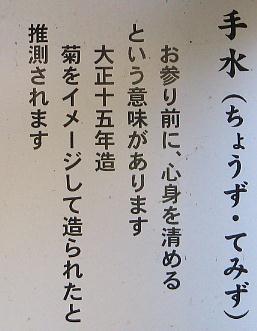 手水(ちょうず・てみず)
お参り前に、心身を清める
という意味があります
大正十五年造
菊をイメージして造られたと
推測されます